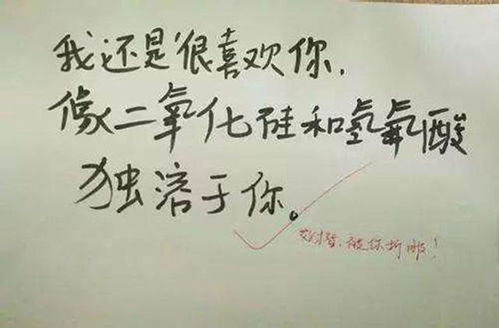 我还是很喜欢你,
像二氧化硅和氢氟酸
独溶于你。
被你折服!